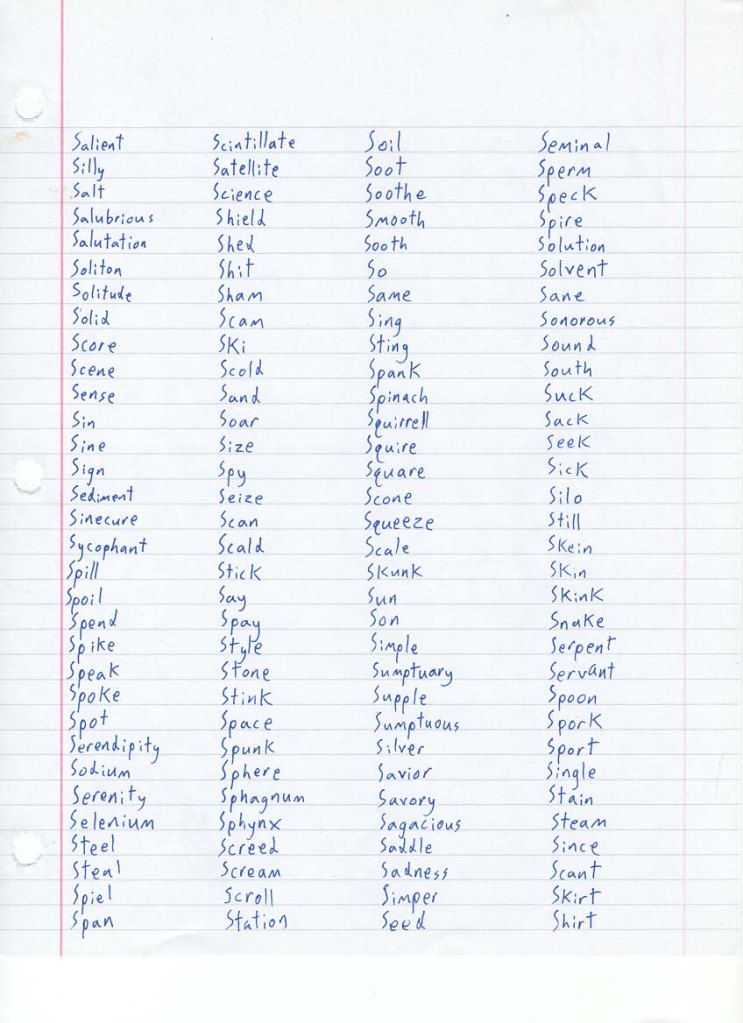 Salient Scintillate Soil Seminal
Silly Satellite Soot Sperm
Salt Science Soothe Speck
Salubrious Shield Smooth Spire
Salutation Shed Sooth Solution
Soliton Shit So Solvent
Solitude Sham Same Sane
Solid Scam Sing Sonorous
Score Ski Sting Sound
Scene Scold Spank South
Sense Sand Spinach Suck
Sin Soar Squirrell Sack
Sine Size Squire Seek
Sign Spy Square Sick
Sediment Seize Scone Silo
Sinecure Scan Squeeze Still
Sycophant Scald Scale Skein
Spill Stick Skunk Skin
Spoil Say Sun Skink
Spend Spay Son Snake
Spike Style Simple Serpent
Speak Stone Sumptuary Servant
Spoke Stink Supple Spoon
Spot Space Sumptuous Spork
Serendipity Spunk Silver Sport
Sodium Sphere Savior Single
Serenity Sphagnum Savory Stain
Selenium Sphynx Sagacious Steam
Steel Screed Saddle Since
Steal Scream Sadness Scant
Spiel Scroll Simper Skirt
Span Station Seed Shirt